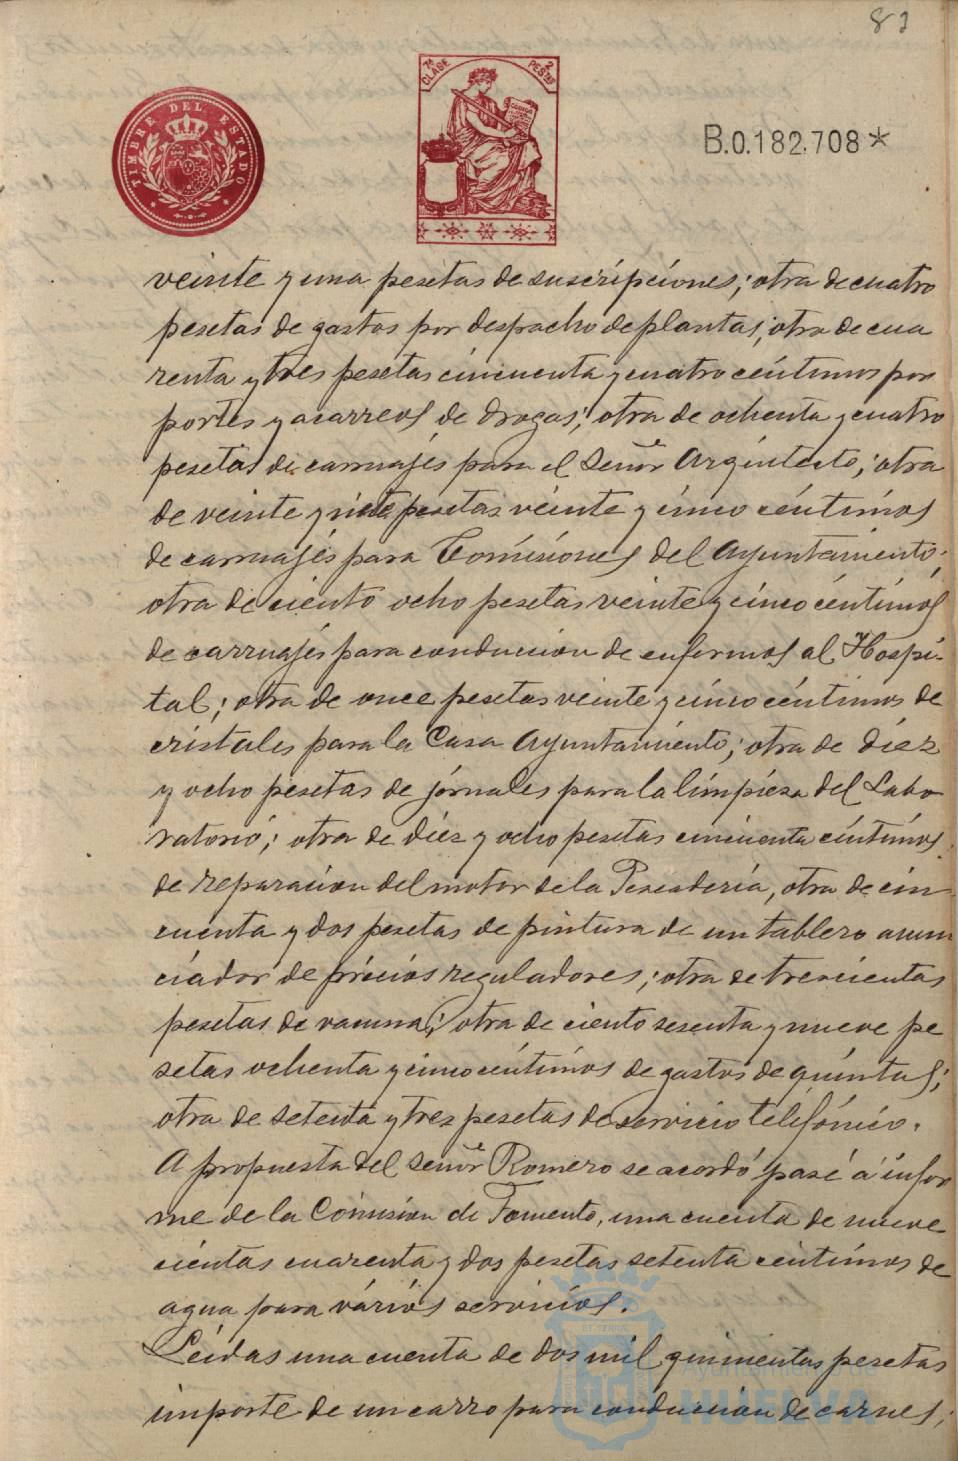 83
TIMBRE DEL ESTADO
7ª CLASE
2 PESETAS
B.0.182.708*
veinte y una pesetas de suscripciones; otra de cuatro
pesetas de gastos por despacho de plantas; otra de cua
renta y tres pesetas cincuenta y cuatro céntimos por
portes y acarreos de drogas; otra de ochenta y cuatro
pesetas de carruajes para el Señor Arquitecto; otra
de veinte y siete pesetas veinte y cinco céntimos
de carruajes para Comisiones del Ayuntamiento;
otra de ciento ocho pesetas veinte y cinco céntimos
de carruajes para conduccion de enfermos al Hospi-
tal; otra de once pesetas veinte y cinco céntimos de
cristales para la Casa Ayuntamiento; otra de diez
y ocho pesetas de jornales para la limpieza del Labo
ratorio; otra de diez y ocho pesetas cincuenta céntimos
de reparacion del motor de la Pescadería, otra de cin
cuenta y dos pesetas de pintura de un tablero anun
ciador de precios reguladores; otra de trescientas
pesetas de vacuna; otra de ciento sesenta y nueve pe
setas ochenta y cinco céntimos de gastos de quintas;
otra de setenta y tres pesetas de servicio telefónico.
A propuesta del señor Romero se acordó pase á infor
me de la Comision de Fomento, una cuenta de nueve
cientas cuarenta y dos pesetas setenta centimos de
agua para varios servicios.
Leidas una cuenta de dos mil quinientas pesetas
importe de un carro para conduccion de carnes;
Ayuntamiento de
HUELVA